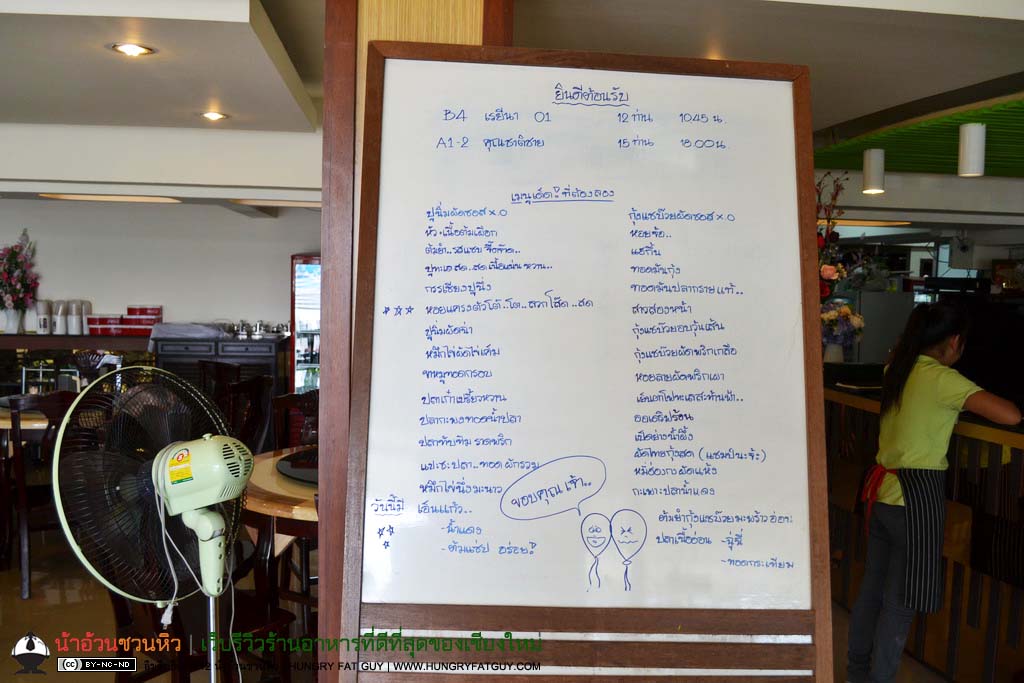 ยินดีต้อนรับ
B4 เรยีนา 01 12 ท่าน 10.45 น.
A1-2 คุณชาติชาย 15 ท่าน 18.00 น.
เมนูเด็ด? ที่ต้องลอง
ปูนิ่มผัดซอส x.o
หัว+เนื้อต้มเผือก
ต้มยำ..รสแซบ จี๊ดจ๊าด..
ปูทะเล สด..สด เนื้อแน่น หวาน..
กรรเชียงปูนึ่ง
หอยแครงตัวโต้..โต..ลวก โส๊ด..สด
ปูนิ่มผัดฉ่า
หมึกไข่ผัดไข่เค็ม
ขาหมูทอดกรอบ
ปลาเก๋าเปรี้ยวหวาน
ปลากะพงทอดน้ำปลา
ปลาทับทิม ราดพริก
แปะซะปลา..ทอด ผักรวม
หมึกไข่นึ่งมะนาว
วันนี้มี เอ็นแก้ว..
- น้ำแดง
- ต้มแซ่บ อร่อย?
กุ้งแชบ๊วยผัดซอส x.o
หอยจ้อ..
แฮ่กึ๊น
ทอดมันกุ้ง
ทอดมันปลากรายแท้..
สาวสองหน้า
กุ้งแชบ๊วยอบวุ้นเส้น
กุ้งแชบ๊วยผัดพริกเกลือ
หอยลายผัดพริกเผา
ออเดริฟร้อน
เป็ดย่างน้ำผึ้ง
ผัดไทยกุ้งสด (แชมป์นะจ๊ะ)
หมี่ฮ่องกงผัดแห้ง
กะเพาะปลาน้ำแดง
ต้มยำกุ้งแชบ๊วยมะพร้าวอ่อน
ปลาเนื้ออ่อน - ฉู่ฉี่
- ทอดกระเทียม
ขอบคุณเจ้า..
น้าอ้วนชวนหิว | เว็บรีวิวร้านอาหารที่ดีที่สุดของเชียงใหม่
(cc) BY-NC-ND
HUNGRY FAT GUY | WWW.HUNGRYFATGUY.COM